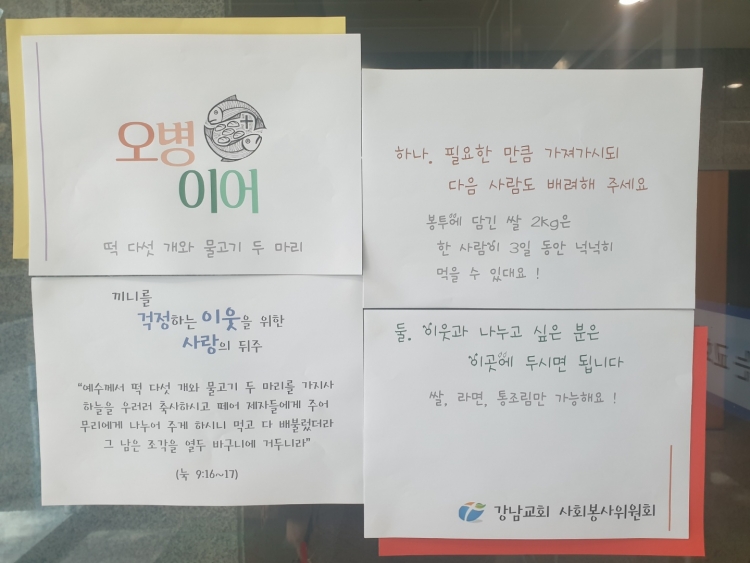 오병
이어
떡 다섯 개와 물고기 두 마리
끼니를
걱정하는 이웃을 위한
사랑의 뒤주
"예수께서 떡 다섯 개와 물고기 두 마리를 가지사
하늘을 우러러 축사하시고 떼어 제자들에게 주어
무리에게 나누어 주게 하시니 먹고 다 배불렀더라
그 남은 조각을 열두 바구니에 거두니라"
(눅 9:16~17)
하나. 필요한 만큼 가져가시되
다음 사람도 배려해 주세요
봉투에 담긴 쌀 2kg은
한 사람이 3일 동안 넉넉히
먹을 수 있대요 !
둘. 이웃과 나누고 싶은 분은
이곳에 두시면 됩니다
쌀, 라면, 통조림만 가능해요 !
강남교회 사회봉사위원회